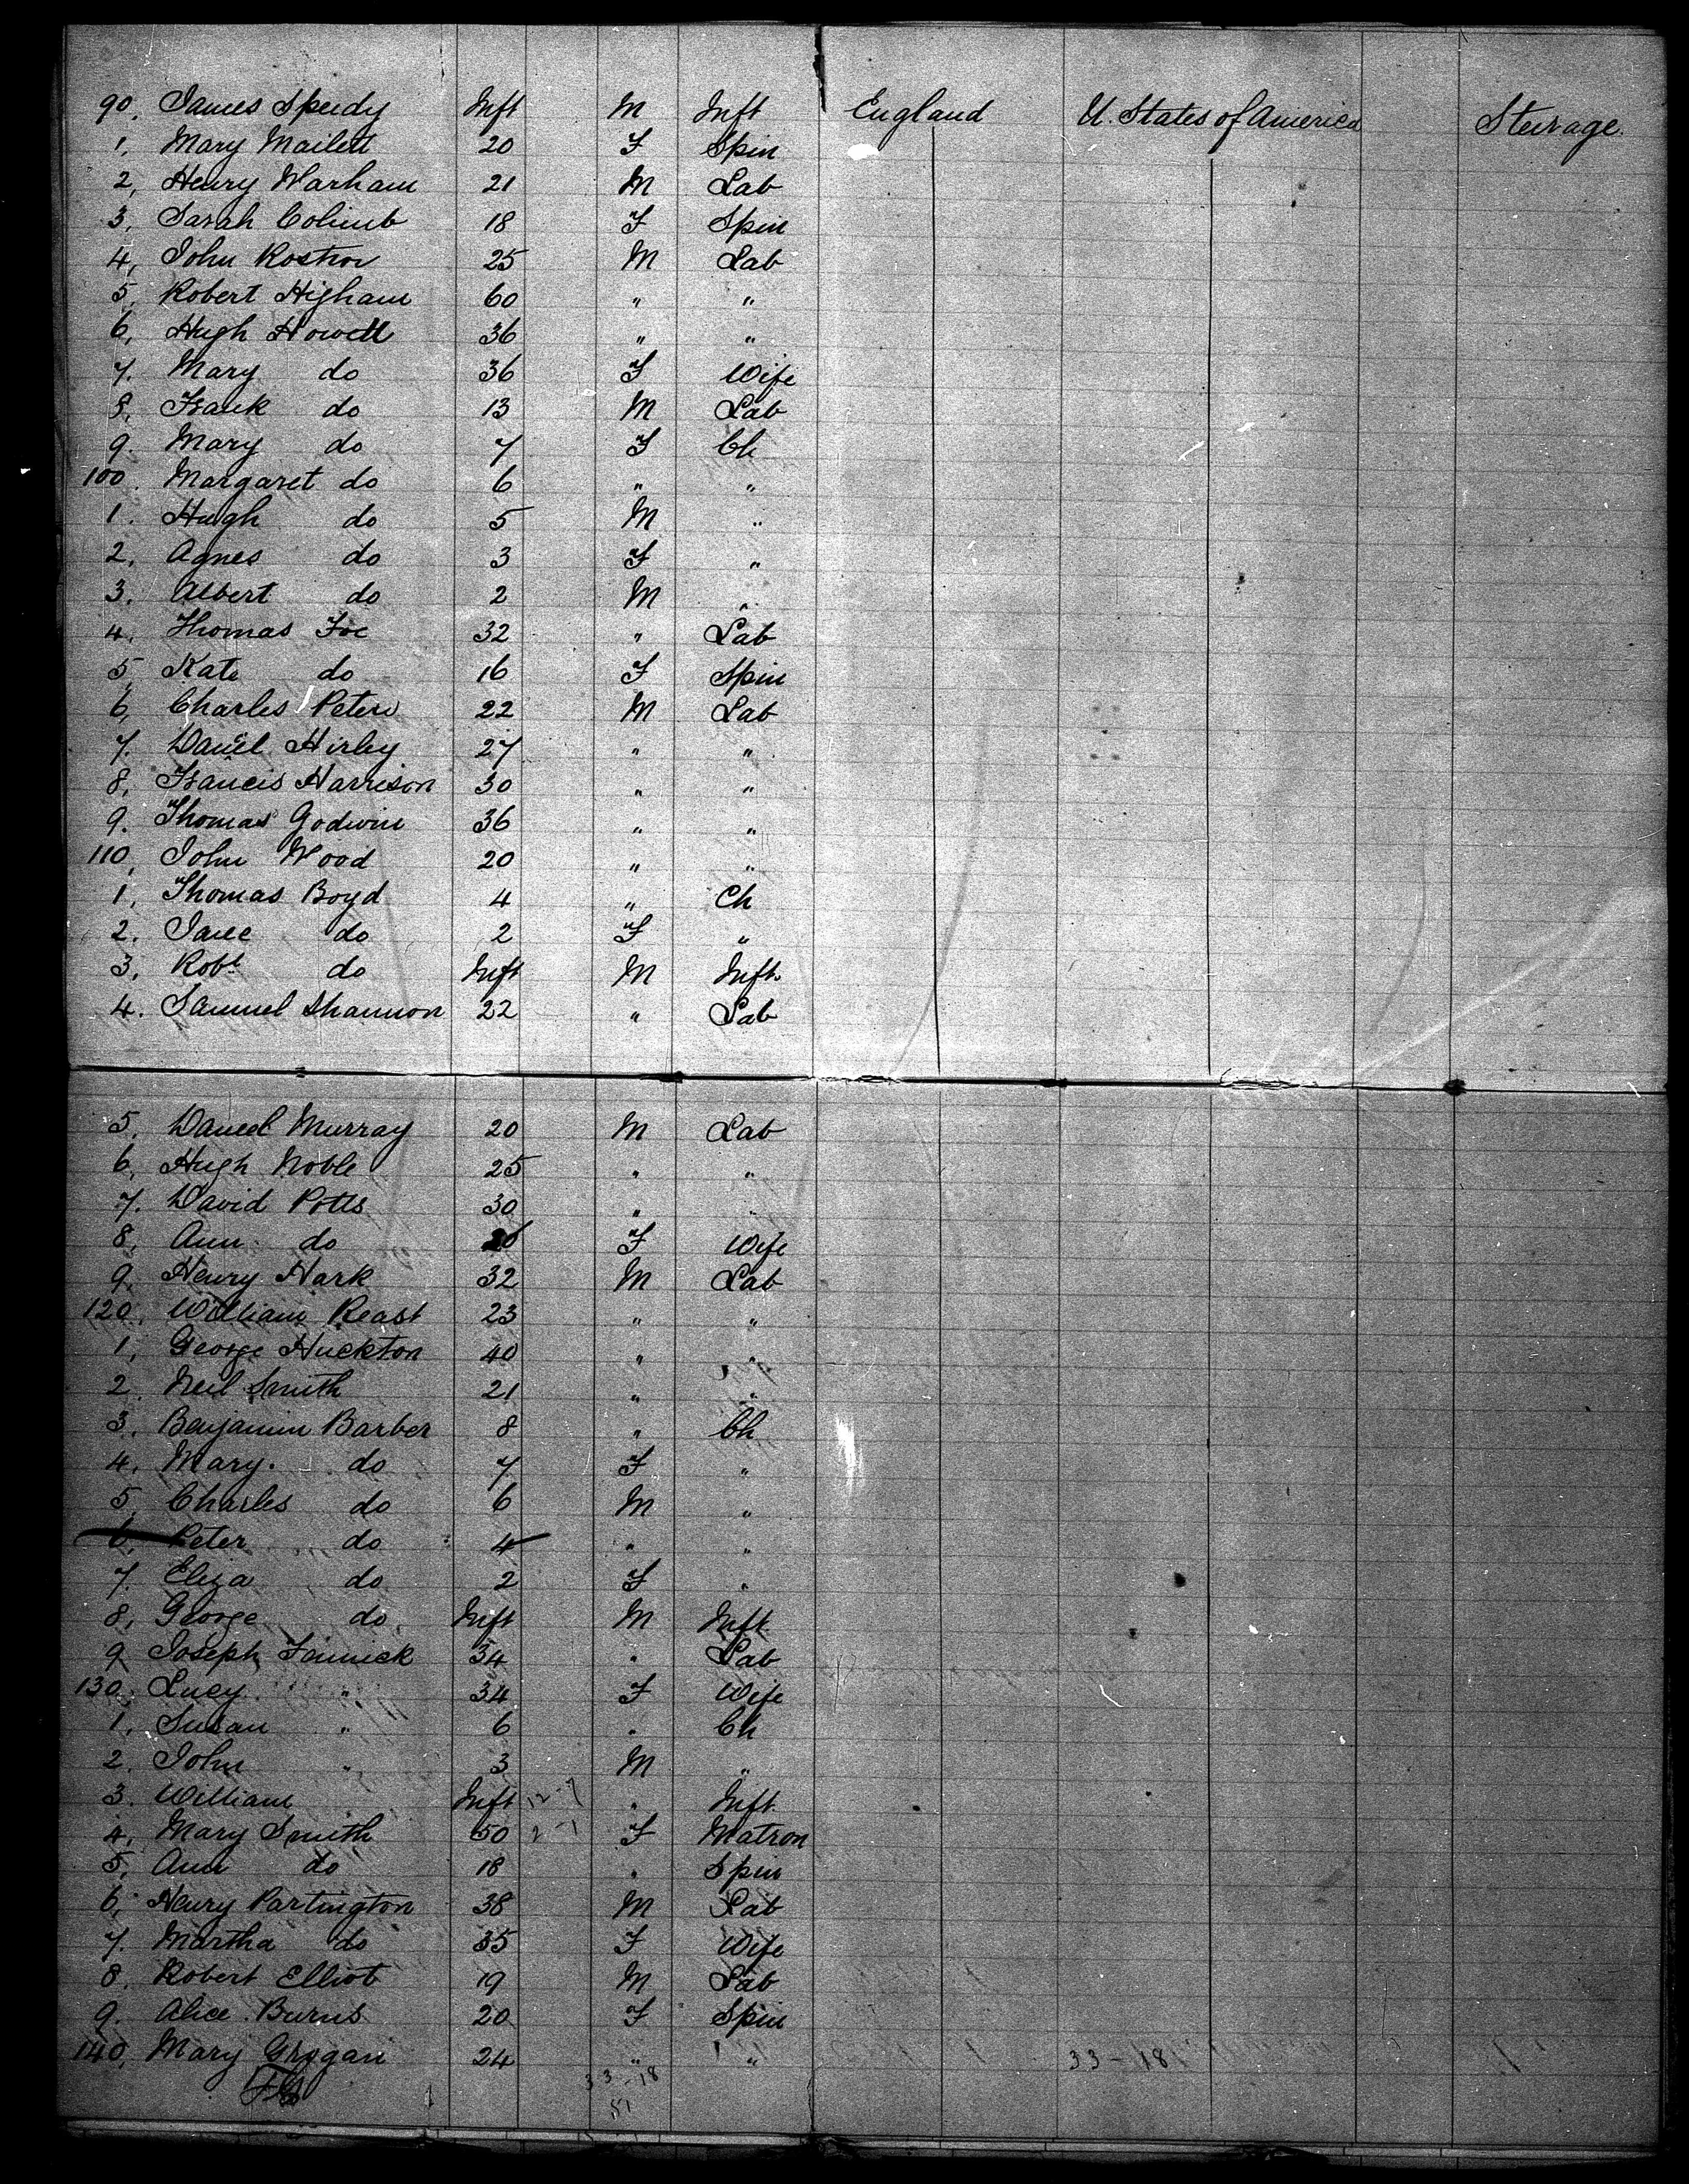 90. James Speedy Inft M Inft England U. States of America Steerage
1. Mary Mailett 20 F Spin
2. Henry Warham 21 M Lab
3. Sarah Columb 18 F Spin
4. John Rostron 25 M Lab
5. Robert Higham 60 " "
6. Hugh Howell 36 " "
7. Mary do 36 F Wife
8. Frank do 13 M Lab
9. Mary do 7 F Ch
100. Margaret do 6 " "
1. Hugh do 5 M "
2. Agnes do 3 F "
3. Albert do 2 M "
4. Thomas Foe 32 " Lab
5. Kate do 16 F Spin
6. Charles Peters 22 M Lab
7. Daniel Hirley 27 " "
8. Francis Harrison 30 " "
9. Thomas Godwin 36 " "
110. John Wood 20 " "
1. Thomas Boyd 4 " Ch
2. Jane do 2 F "
3. Robt do Inft M Inft.
4. Samuel Shannon 22 " Lab
5. Daniel Murray 20 M Lab
6. Hugh Noble 25 " "
7. David Potts 30 " "
8. Ann do F Wife
9. Henry Hark 32 M Lab
120. William Reast 23 " "
1. George Huckton 40 " "
2. Neil Smith 21 " "
3. Benjamin Barber 8 " Ch
4. Mary. do 7 F "
5. Charles do 6 M "
6. Peter do 4 " "
7. Eliza do 2 F "
8. George do Inft M Inft.
9. Joseph Finnick 34 " Lab
130. Lucy " 34 F Wife
1. Susan " 6 " Ch
2. John " 3 M "
3. William Inft 12-7 " Inft.
4. Mary Smith 50 2-1 F Matron
5. Ann do 18 " Spin
6. Henry Partington 38 M Lab
7. Martha do 35 F Wife
8. Robert Elliot 19 M Lab
9. Alice Burns 20 F Spin
140. Mary Grogan 24 " " 33-18
33-18